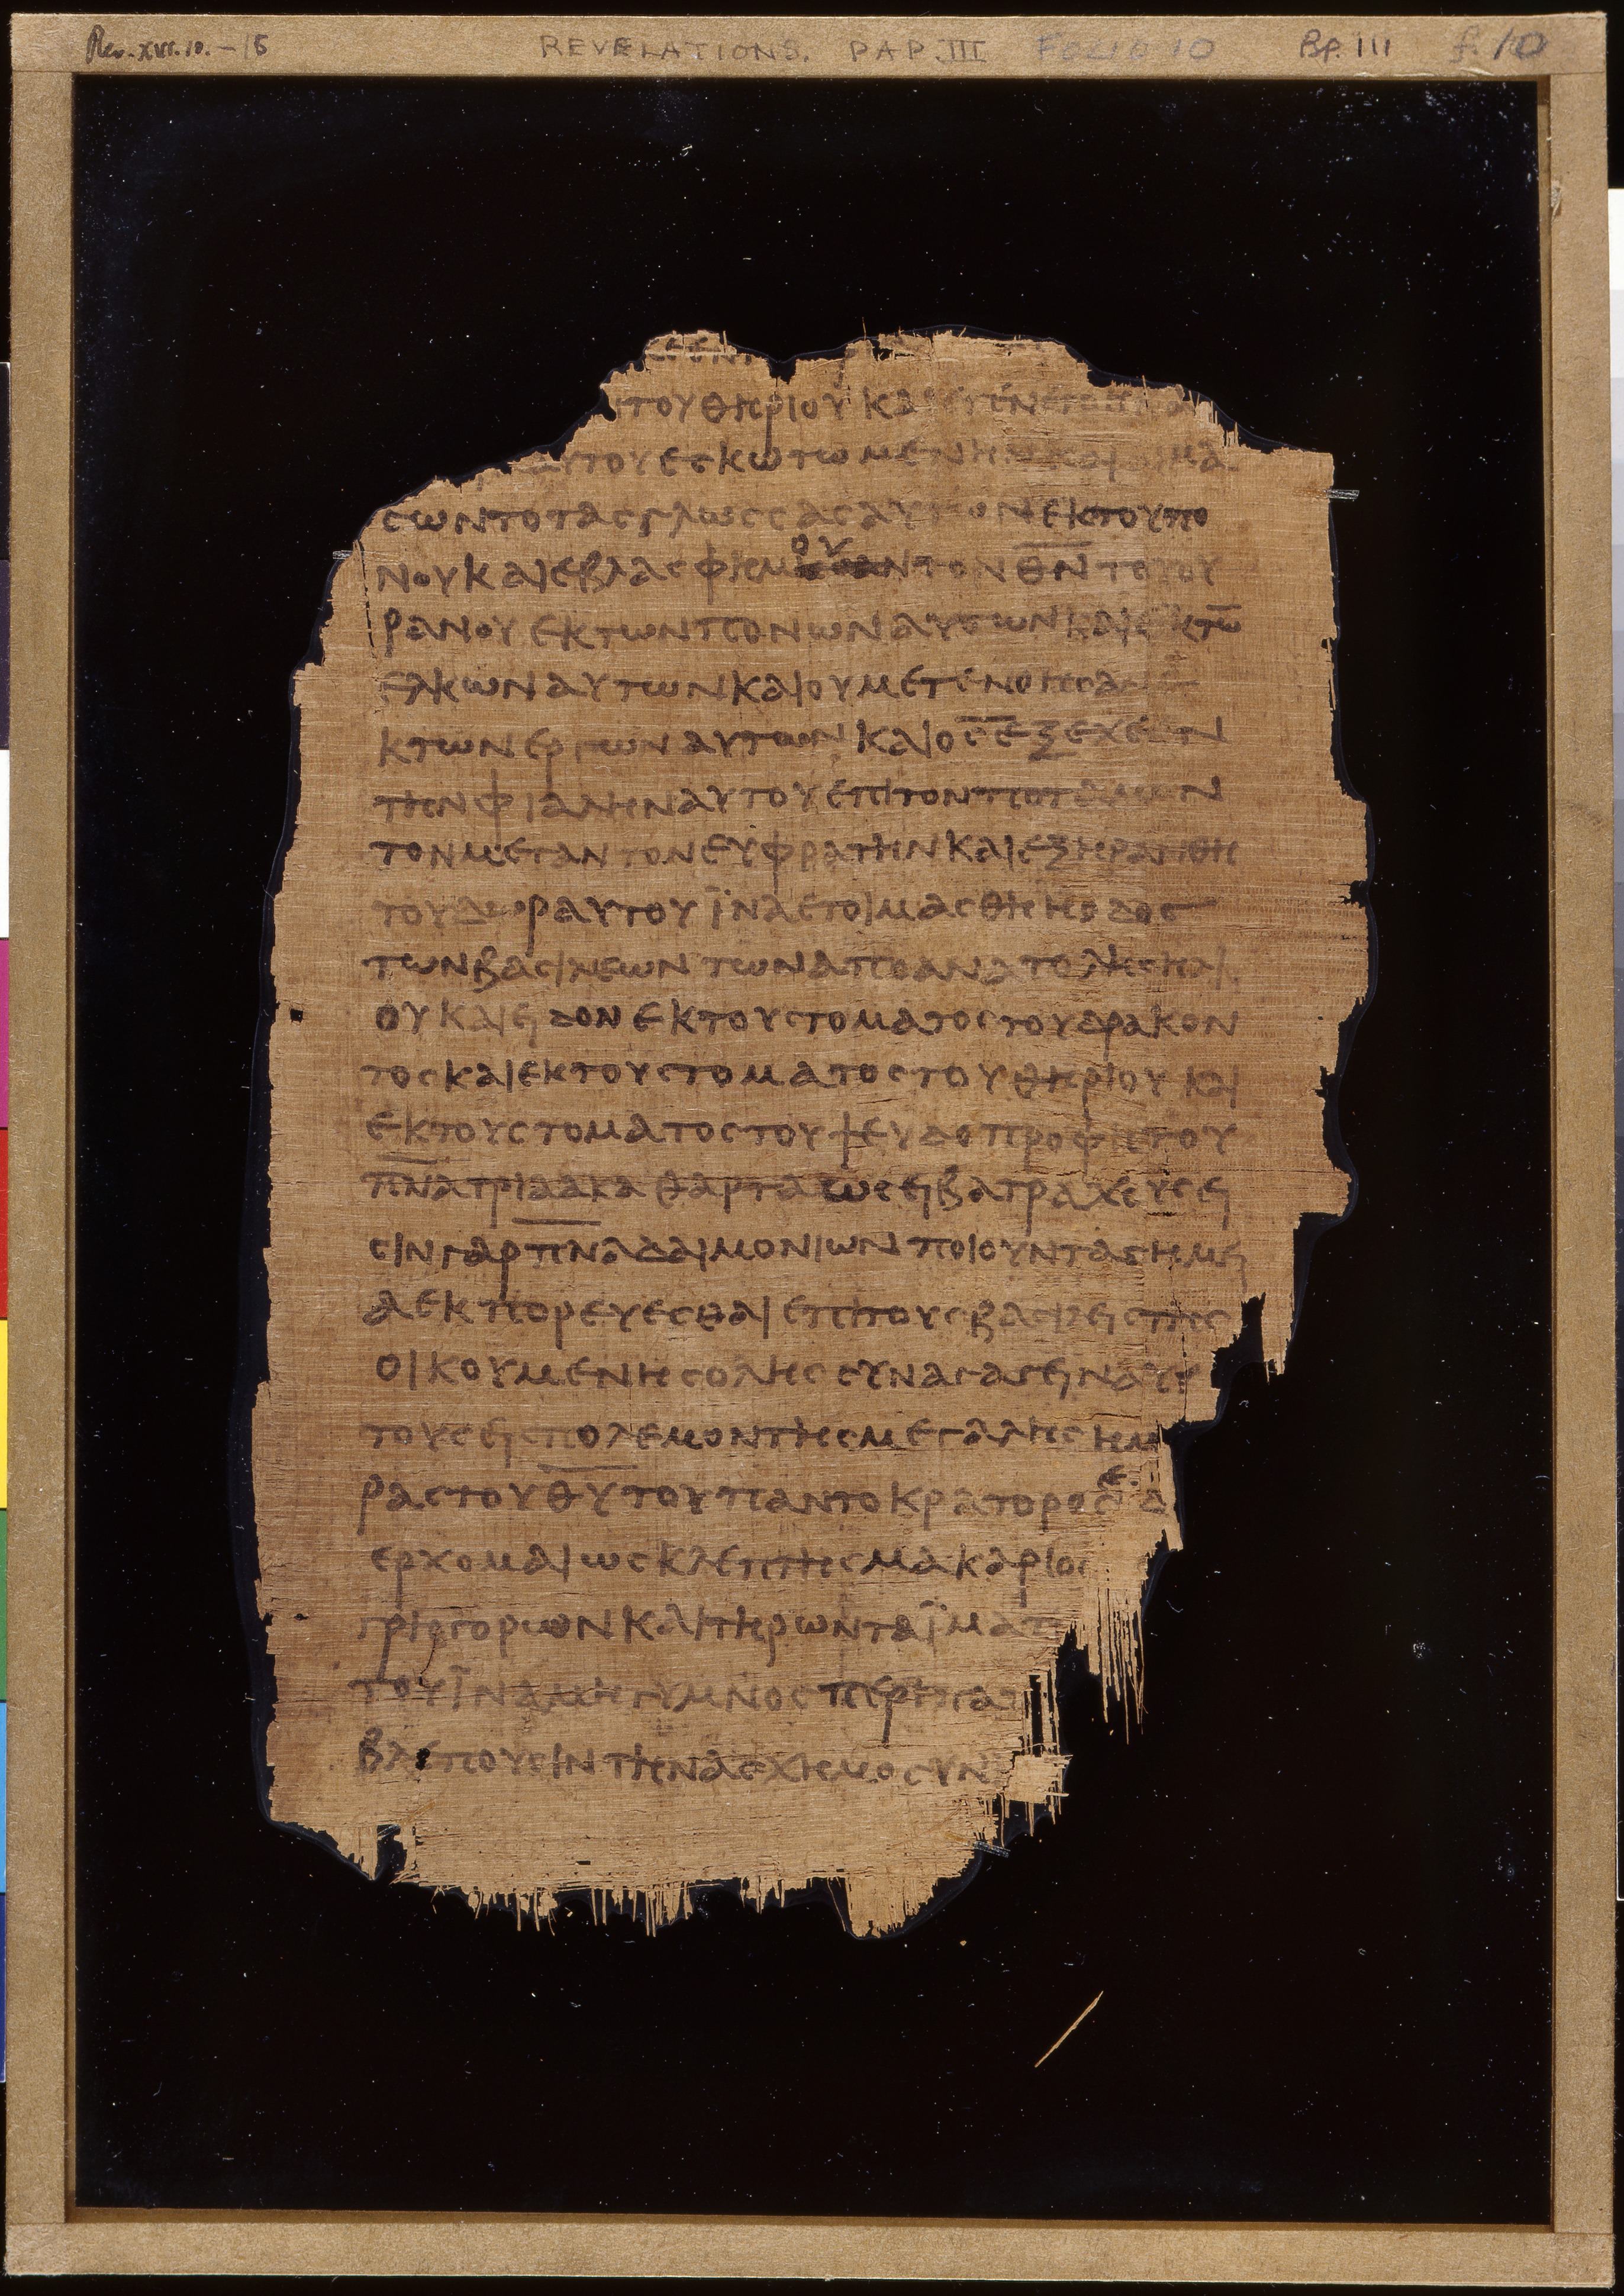 Rev. XVI. 10. – 15 REVELATIONS. PAP. III FOLIO 10 Bp. III f. 10
του θηριου και
του εσκωτωμενη και
σωντο τας γλωσσας αυτων εκ του πο
νου και εβλασφημουν τον θν του ου
ρανου εκ των πονων αυτων και εκ τω̅
ελκων αυτων και ου μετενοησαν ε
κ των εργων αυτων και ο ς̅ εξεχεεν
την φιαλην αυτου επι τον ποταμον
τον μεγαν τον ευφρατην και εξηρανθη
το υδωρ αυτου ϊνα ετοιμασθη η οδος
των βασιλεων των απο ανατολης ηλι
ου και ειδον εκ του στοματος του δρακον
τος και εκ του στοματος του θηριου και
εκ του στοματος του ψευδοπροφητου
πνα τρια ακαθαρτα ωσει βατραχους ει
σιν γαρ πνα δαιμονιων ποιουντα σημει
α εκπορευεσθαι επι τους βασιλεις της
οικουμενης ολης συναγαγειν αυ
τους εις πολεμον της μεγαλης ημ
ρας του θυ του παντοκρατορος ε δ
ερχομαι ως κλεπτης μακαριος
γρηγορων και τηρων τα ϊματ
του ϊνα μη γυμνος περιπατ
βλεπουσιν την ασχημοσυν